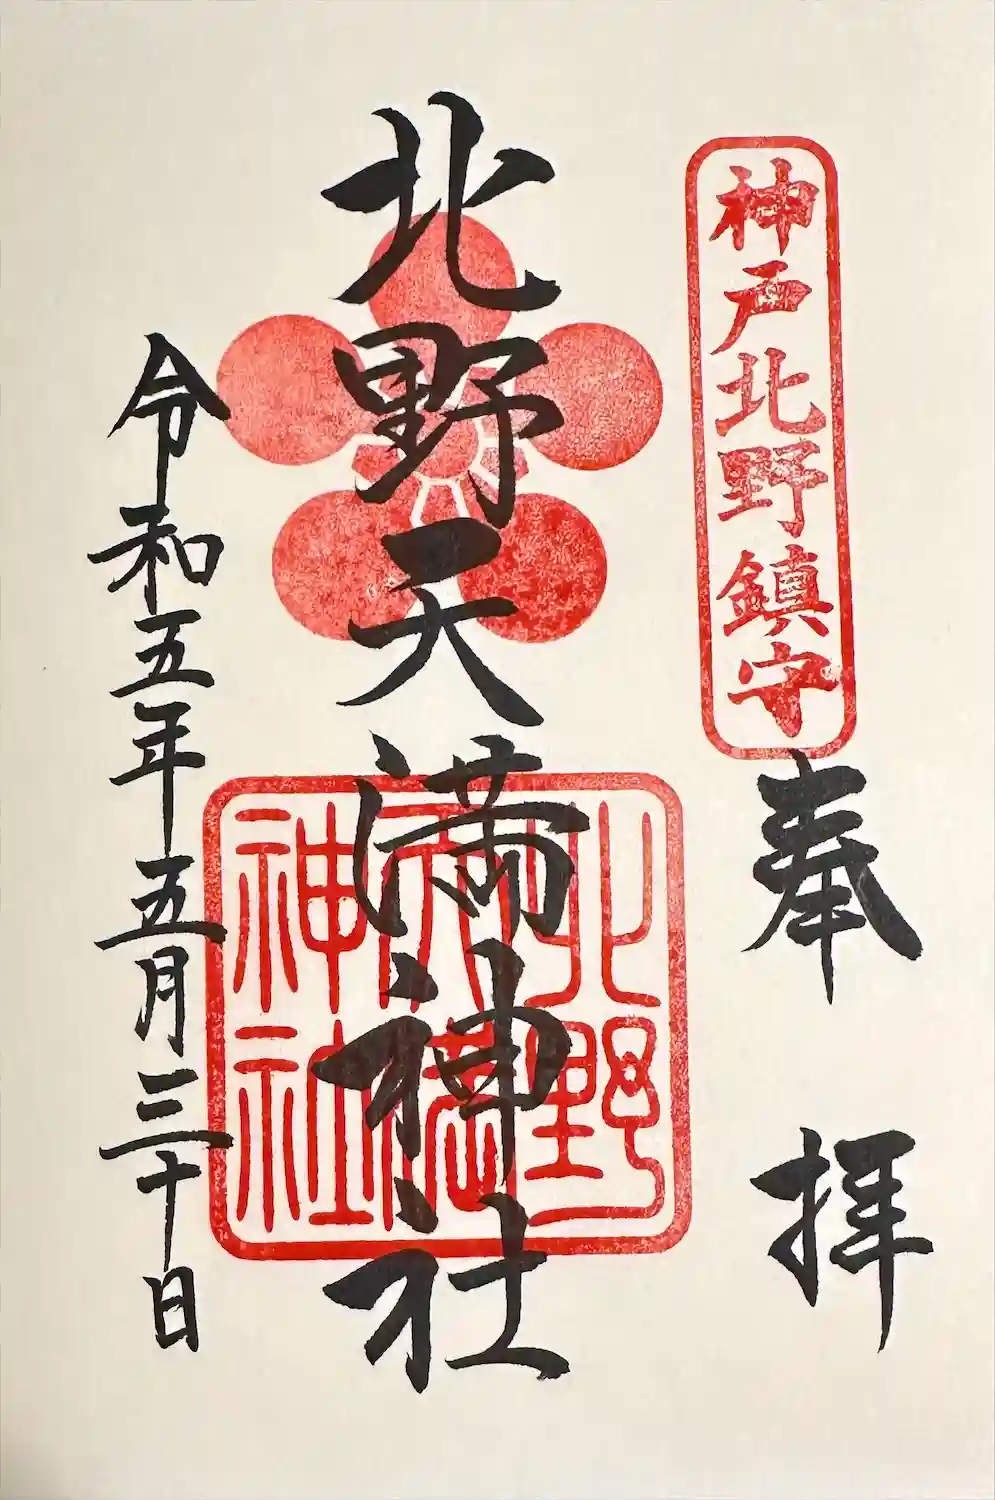 神戸北野鎮守
奉拝
北野天満神社
北野
天満
神社
令和五年五月三十日